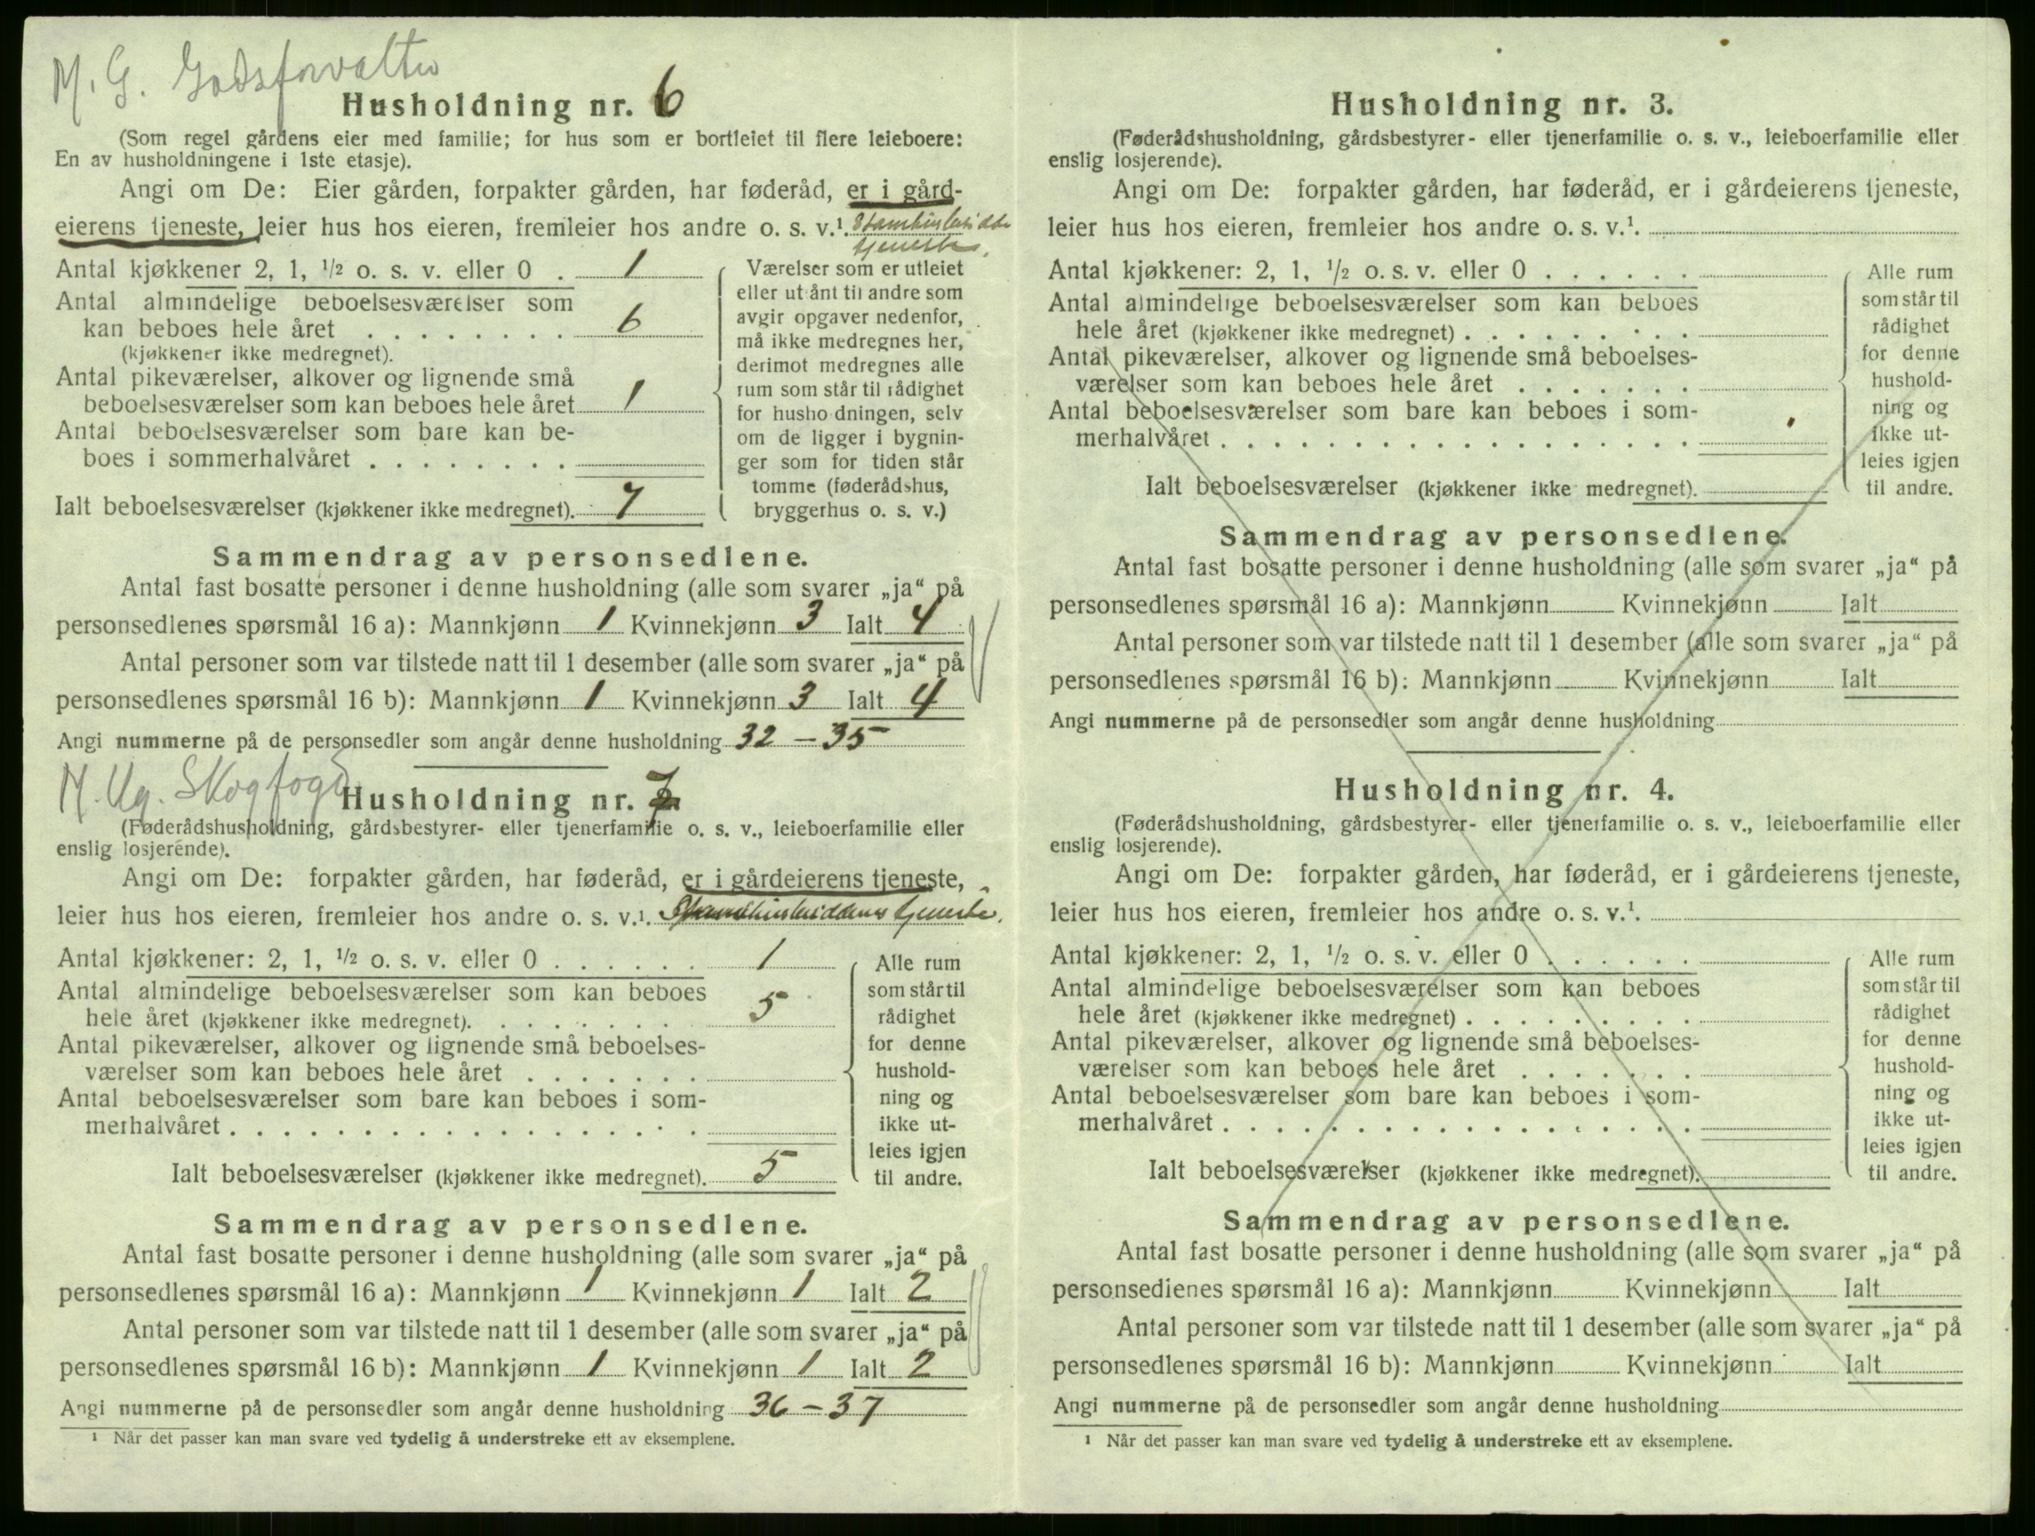 M. G. Godsforvalter
Husholdning nr. 6
(Som regel gårdens eier med familie; for hus som er bortleiet til flere leieboere:
En av husholdningene i 1ste etasje).
Angi om De: Eier gården, forpakter gården, har føderåd, er i gård-
eierens tjeneste, leier hus hos eieren, fremleier hos andre o. s. v.¹
tjeneste.
Antal kjøkkener 2, 1, ½ o. s. v. eller 0 . 1
Antal almindelige beboelsesværelser som
kan beboes hele året . . . . . . . . 6
(kjøkkener ikke medregnet).
Antal pikeværelser, alkover og lignende små
beboelsesværelser som kan beboes hele året 1
Antal beboelsesværelser som bare kan be-
boes i sommerhalvåret . . . . . . . .
Ialt beboelsesværelser (kjøkkener ikke medregnet). 7
Værelser som er utleiet
eller utlånt til andre som
avgir opgaver nedenfor,
må ikke medregnes her,
derimot medregnes alle
rum som står til rådighet
for husholdningen, selv
om de ligger i bygnin-
ger som for tiden står
tomme (føderådshus,
bryggerhus o. s. v.)
Sammendrag av personsedlene.
Antal fast bosatte personer i denne husholdning (alle som svarer „ja“ på
personsedlenes spørsmål 16 a): Mannkjønn 1 Kvinnekjønn 3 Ialt 4
Antal personer som var tilstede natt til 1 desember (alle som svarer „ja“ på
personsedlenes spørsmål 16 b): Mannkjønn 1 Kvinnekjønn 3 Ialt 4
Angi nummerne på de personsedler som angår denne husholdning 32 – 35
M. Ug. Skogfogd
Husholdning nr. 7
(Føderådshusholdning, gårdsbestyrer- eller tjenerfamilie o. s. v., leieboerfamilie eller
enslig losjerende).
Angi om De: forpakter gården, har føderåd, er i gårdeierens tjeneste,
leier hus hos eieren, fremleier hos andre o. s. v.¹. tjeneste.
Antal kjøkkener: 2, 1, ½ o. s. v. eller 0 . . . . . . 1
Antal almindelige beboelsesværelser som kan beboes
hele året (kjøkkener ikke medregnet). . . . . . . . 5
Antal pikeværelser, alkover og lignende små beboelses-
værelser som kan beboes hele året . . . . . . .
Antal beboelsesværelser som bare kan beboes i som-
merhalvåret . . . . . . . . . . . . . . . . . .
Ialt beboelsesværelser (kjøkkener ikke medregnet). 5
Alle rum
som står til
rådighet
for denne
hushold-
ning og
ikke ut-
leies igjen
til andre.
Sammendrag av personsedlene.
Antal fast bosatte personer i denne husholdning (alle som svarer „ja“ på
personsedlenes spørsmål 16 a): Mannkjønn 1 Kvinnekjønn 1 Ialt 2
Antal personer som var tilstede natt til 1 desember (alle som svarer „ja“ på
personsedlenes spørsmål 16 b): Mannkjønn 1 Kvinnekjønn 1 Ialt 2
Angi nummerne på de personsedler som angår denne husholdning 36 – 37
¹ Når det passer kan man svare ved tydelig å understreke ett av eksemplene.
Husholdning nr. 3.
(Føderådshusholdning, gårdsbestyrer- eller tjenerfamilie o. s. v., leieboerfamilie eller
enslig losjerende).
Angi om De: forpakter gården, har føderåd, er i gårdeierens tjeneste,
leier hus hos eieren, fremleier hos andre o. s. v.¹.
Antal kjøkkener: 2, 1, ½ o. s. v. eller 0 . . . . . .
Antal almindelige beboelsesværelser som kan beboes
hele året (kjøkkener ikke medregnet) . . . . . . . .
Antal pikeværelser, alkover og lignende små beboelses-
værelser som kan beboes hele året . . . . . . .
Antal beboelsesværelser som bare kan beboes i som-
merhalvåret . . . . . . . . . . . . . . . . . .
Ialt beboelsesværelser (kjøkkener ikke medregnet).
Alle rum
som står til
rådighet
for denne
hushold-
ning og
ikke ut-
leies igjen
til andre.
Sammendrag av personsedlene.
Antal fast bosatte personer i denne husholdning (alle som svarer „ja“ på
personsedlenes spørsmål 16 a): Mannkjønn Kvinnekjønn Ialt
Antal personer som var tilstede natt til 1 desember (alle som svarer „ja“ på
personsedlenes spørsmål 16 b): Mannkjønn Kvinnekjønn Ialt
Angi nummerne på de personsedler som angår denne husholdning
Husholdning nr. 4.
(Føderådshusholdning, gårdsbestyrer- eller tjenerfamilie o. s. v., leieboerfamilie eller
enslig losjerende).
Angi om De: forpakter gården, har føderåd, er i gårdeierens tjeneste,
leier hus hos eieren, fremleier hos andre o. s. v.¹.
Antal kjøkkener: 2, 1, ½ o. s. v. eller 0 . . . . . .
Antal almindelige beboelsesværelser som kan beboes
hele året (kjøkkener ikke medregnet) . . . . . . . .
Antal pikeværelser, alkover og lignende små beboelses-
værelser som kan beboes hele året . . . . . . .
Antal beboelsesværelser som bare kan beboes i som-
merhalvåret . . . . . . . . . . . . . . . . . .
Ialt beboelsesværelser (kjøkkener ikke medregnet).
Alle rum
som står til
rådighet
for denne
hushold-
ning og
ikke ut-
leies igjen
til andre.
Sammendrag av personsedlene.
Antal fast bosatte personer i denne husholdning (alle som svarer „ja“ på
personsedlenes spørsmål 16 a): Mannkjønn Kvinnekjønn Ialt
Antal personer som var tilstede natt til 1 desember (alle som svarer „ja“ på
personsedlenes spørsmål 16 b): Mannkjønn Kvinnekjønn Ialt
Angi nummerne på de personsedler som angår denne husholdning
¹ Når det passer kan man svare ved tydelig å understreke ett av eksemplene.